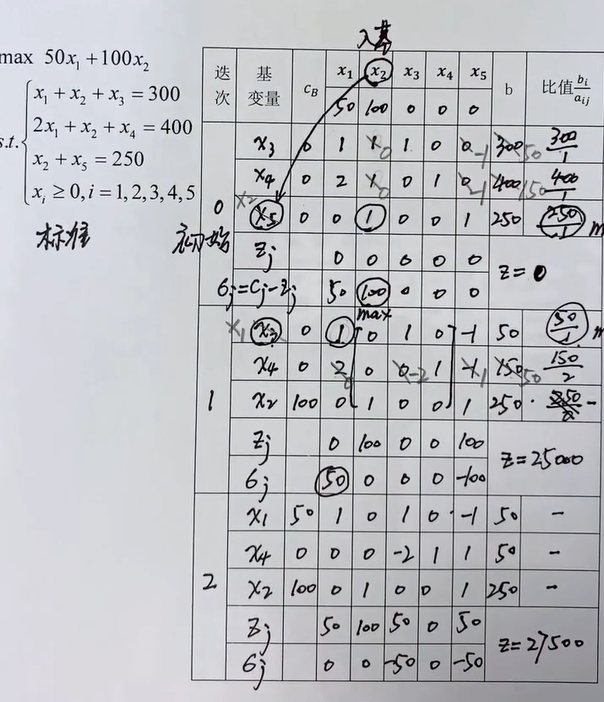 入基
max 50x₁+100x₂
s.t. x₁ + x₂ + x₃ = 300
2x₁ + x₂ + x₄ = 400
x₂ + x₅ = 250
xᵢ ≥ 0, i = 1,2,3,4,5
标准
初始
迭次 基变量 c_B x₁ x₂ x₃ x₄ x₅ b 比值 bᵢ/aᵢⱼ
50 100 0 0 0
x₃ 0 1 1 0 1 0 0 -1 300 50 300/1
x₄ 0 2 1 0 0 1 0 -1 400 150 400/1
0 x₂ x₅ 0 0 1 0 0 1 250 250/1 m
zⱼ 0 0 0 0 0 z=0
σⱼ=cⱼ-zⱼ 50 100 0 0 0
max
x₁ x₃ 0 1 0 1 0 -1 50 50/1 m
x₄ 0 2 0 0 0 -2 1 -1 1 150 50 150/2
1 x₂ 100 0 1 0 0 1 250 250/0 -
zⱼ 0 100 0 0 100 z=25000
σⱼ 50 0 0 0 -100
x₁ 50 1 0 1 0 -1 50 -
x₄ 0 0 0 -2 1 1 50 -
2 x₂ 100 0 1 0 0 1 250 -
zⱼ 50 100 50 0 50 z=27500
σⱼ 0 0 -50 0 -50